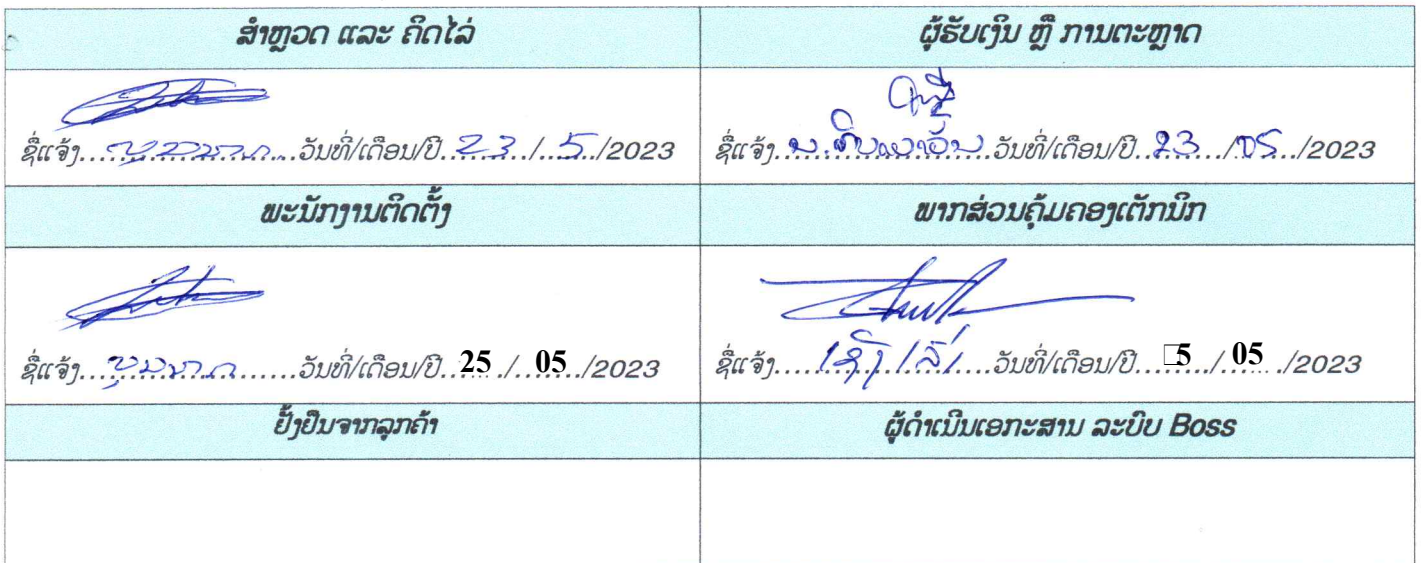 ສຳຫຼວດ ແລະ ຄິດໄລ່
ຜູ້ຮັບເງິນ ຫຼື ການຕະຫຼາດ
ຊື່ແຈ້ງ.... ....ວັນທີ່/ເດືອນ/ປີ..23../..5../2023
ຊື່ແຈ້ງ.... ....ວັນທີ່/ເດືອນ/ປີ..23../05../2023
ພະນັກງານຕິດຕັ້ງ
ພາກສ່ວນຄຸ້ມຄອງເຕັກນິກ
ຊື່ແຈ້ງ.... ....ວັນທີ່/ເດືອນ/ປີ..25../..05../2023
ຊື່ແຈ້ງ.... ....ວັນທີ່/ເດືອນ/ປີ....5../.05../2023
ຢັ້ງຢືນຈາກລູກຄ້າ
ຜູ້ດຳເນີນເອກະສານ ລະບົບ Boss